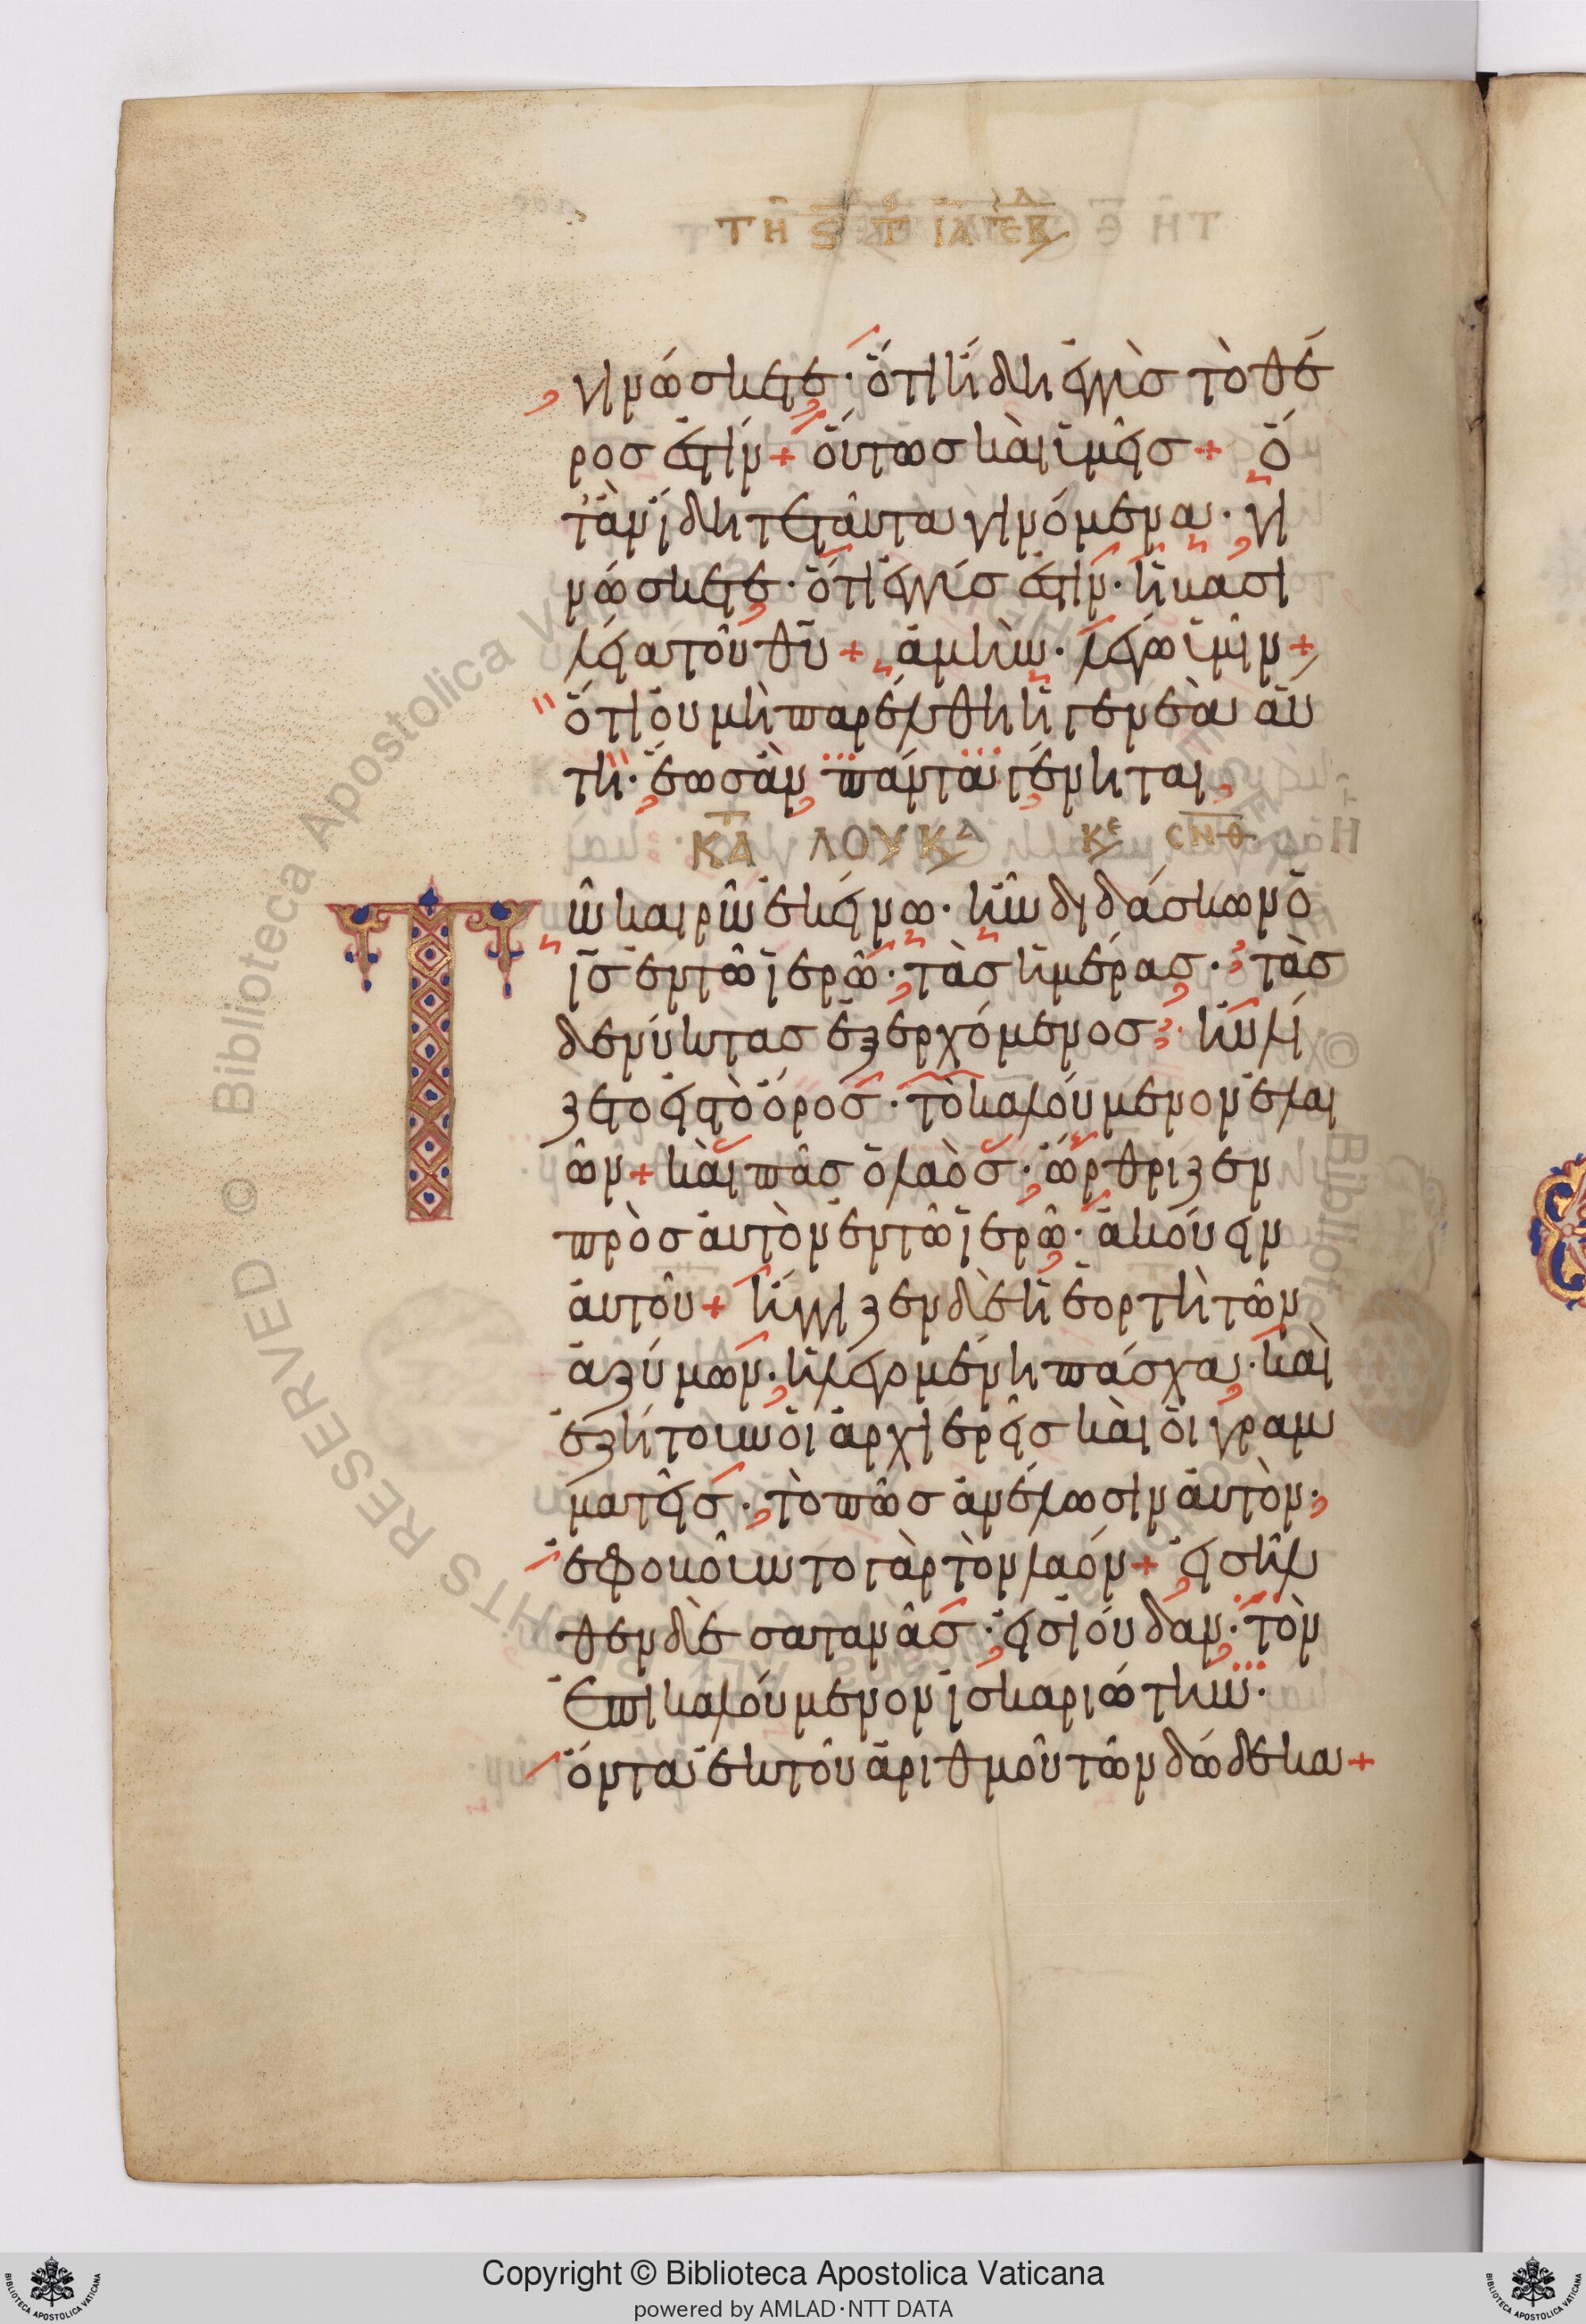 ΤΗ Ϛ Τ ΙΑ ΕΒΔ
γινώσκετε· ὅτι ἤδη ἐγγὺς τὸ θέ
ρος ἐστίν + οὕτως καὶ ὑμεῖς + ὅ
τὰν ἴδητε ταῦτα γινόμενα· γι
νώσκετε· ὅτι ἐγγύς ἐστιν· ἡ βασι
λεία τοῦ θῦ + ἀμὴν· λέγω ὑμῖν +
ὅτι οὐ μὴ παρέλθη ἡ γενεὰ αὕ
τη· ἕως ἂν πάντα γένηται
ΚΑΤ ΛΟΥΚΑ ΚΕ
Τῶ καιρῶ ἐκείνω· ἦν διδάσκων ὁ
ις ἐν τῶ ἱερῶ· τὰς ἡμέρας· τὰς
δὲ νύκτας ἐξερχόμενος· ηὐλί
ζετο εἰς τὸ ὄρος· τὸ καλούμενον ἐλαι
ῶν + καὶ πᾶς ὁ λαὸς· ὤρθριζεν
πρὸς αὐτὸν ἐν τῶ ἱερῶ· ἀκούειν
αὐτοῦ + ἤγγιζεν δὲ ἡ ἑορτὴ τῶν
ἀζύμων· ἡ λεγομένη πάσχα· καὶ
ἐζήτουν οἱ ἀρχιερεῖς καὶ οἱ γραμ
ματεῖς· τὸ πῶς ἀνέλωσιν αὐτὸν·
ἐφοβοῦντο γὰρ τὸν λαόν + εἰσῆλ
θεν δὲ σατανᾶς· εἰς ἰούδαν· τὸν
ἐπικαλούμενον ἰσκαριώτην·
ὄντα ἐκ τοῦ ἀριθμοῦ τῶν δώδεκα +
© Biblioteca Apostolica Vaticana
RIGHTS RESERVED
Copyright © Biblioteca Apostolica Vaticana
powered by AMLAD·NTT DATA